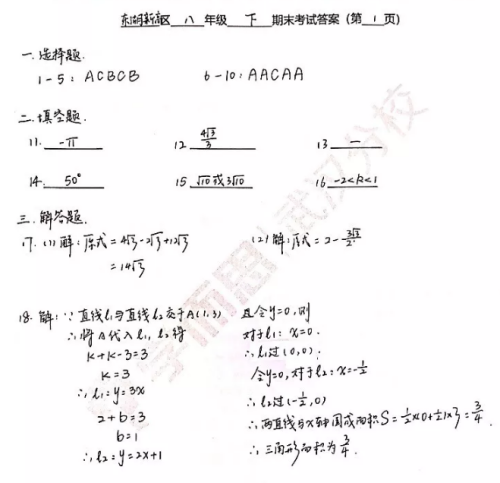 东湖新高区 八 年级 下 期末考试答案（第 1 页）
一.选择题.
1-5: ACBCB 6-10: AACAA
二.填空题.
11. -π 12 4√3/3 13 一
14. 50° 15 √10或3√10 16 -2<k<1
三.解答题.
17. (1)解:原式=4√3-2√3+12√3 (2)解:原式=2-3√2/2
=14√3
18.解:∵直线l₁与直线l₂交于A(1,3)
∴将A代入l₁, l₂得
k+k-3=3
k=3
∴l₁=y=3x
2+b=3
b=1
∴l₂=y=2x+1
且令y=0,则
对于l₁: x=0.
∴l₁过(0,0);
令y=0,对于l₂:x=-1/2
∴l₂过(-1/2,0)
∴两直线与x轴围成面积S=1/2×(0+1/2)×3=3/4.
∴三角形面积为3/4.
学而思 武汉分校